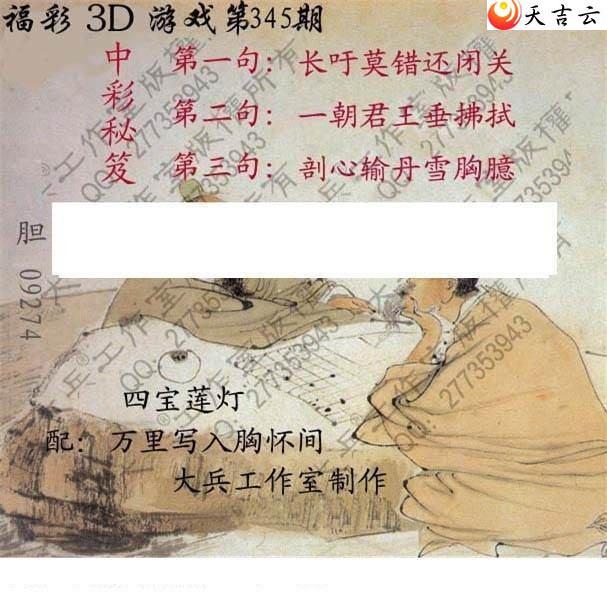 福彩 3D 游戏第345期
天吉云
中彩秘笈
第一句：长吁莫错还闭关
第二句：一朝君王垂拂拭
第三句：剖心输丹雪胸臆
胆 09274
四宝莲灯
配：万里写入胸怀间
大兵工作室制作
大兵®工作室版權所有
QQ：277353943